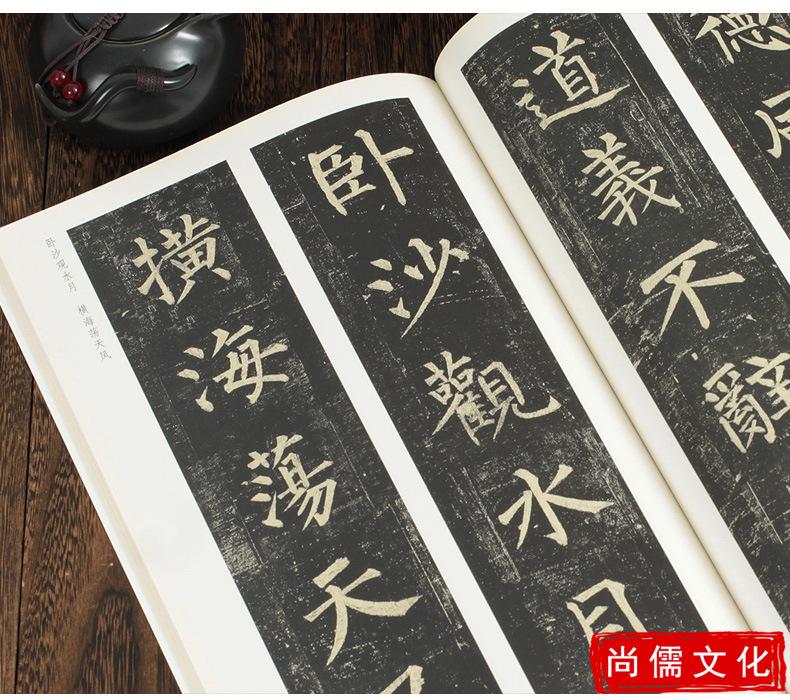 德
道義不辭
卧沙觀水月
橫海蕩天
卧沙观水月 横海荡天风
尚儒文化